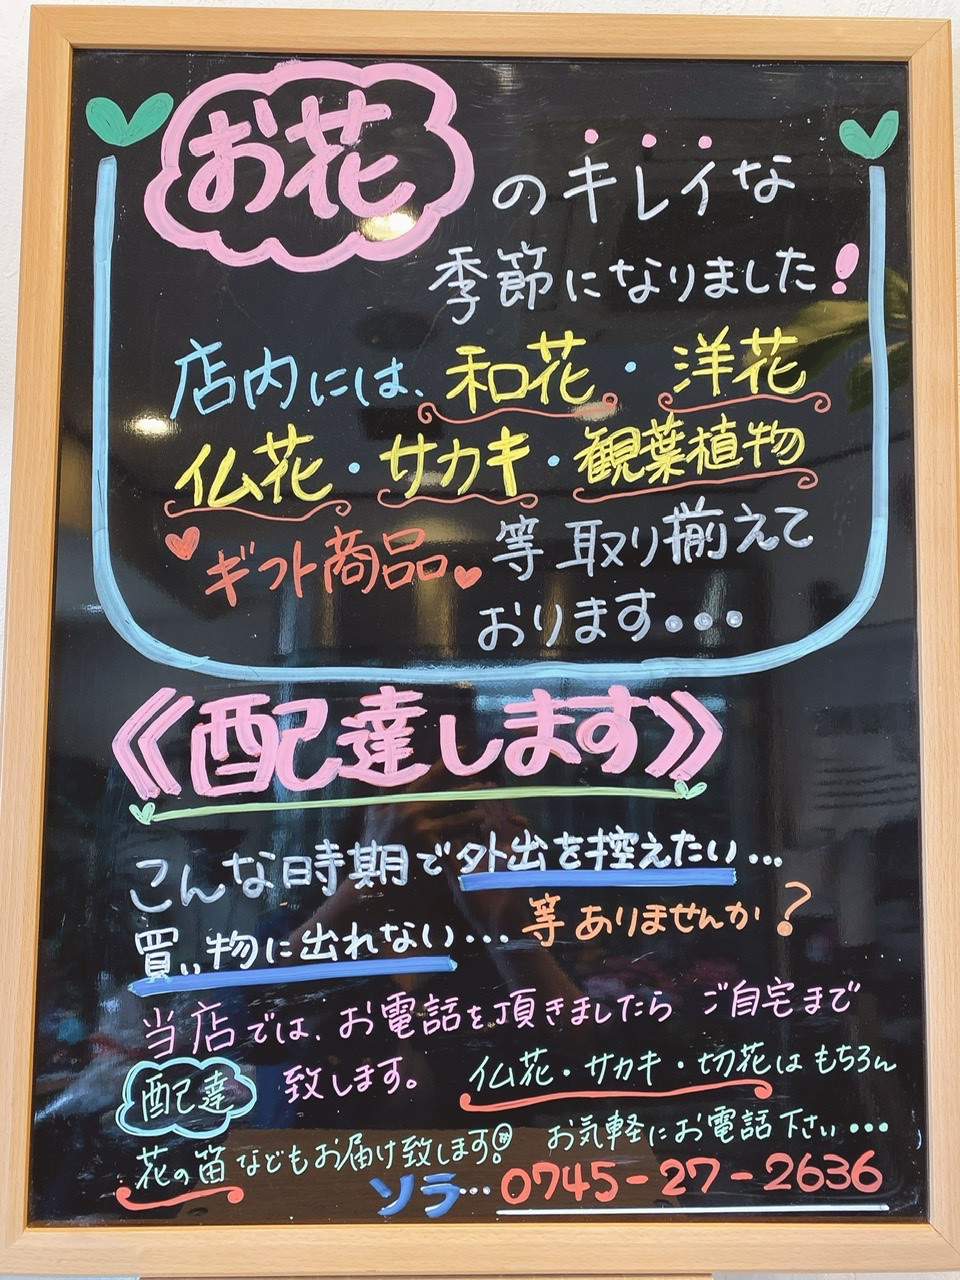 お花のキレイな
季節になりました!
店内には、和花・洋花
仏花・サカキ・観葉植物
ギフト商品。等取り揃えて
おります...
《配達します》
こんな時期で外出を控えたい...
買い物に出れない...等ありませんか?
当店では、お電話を頂きましたら ご自宅まで
配達 致します。 仏花・サカキ・切花はもちろん
花の苗などもお届け致します。 お気軽にお電話下さい...
ソラ...0745-27-2636